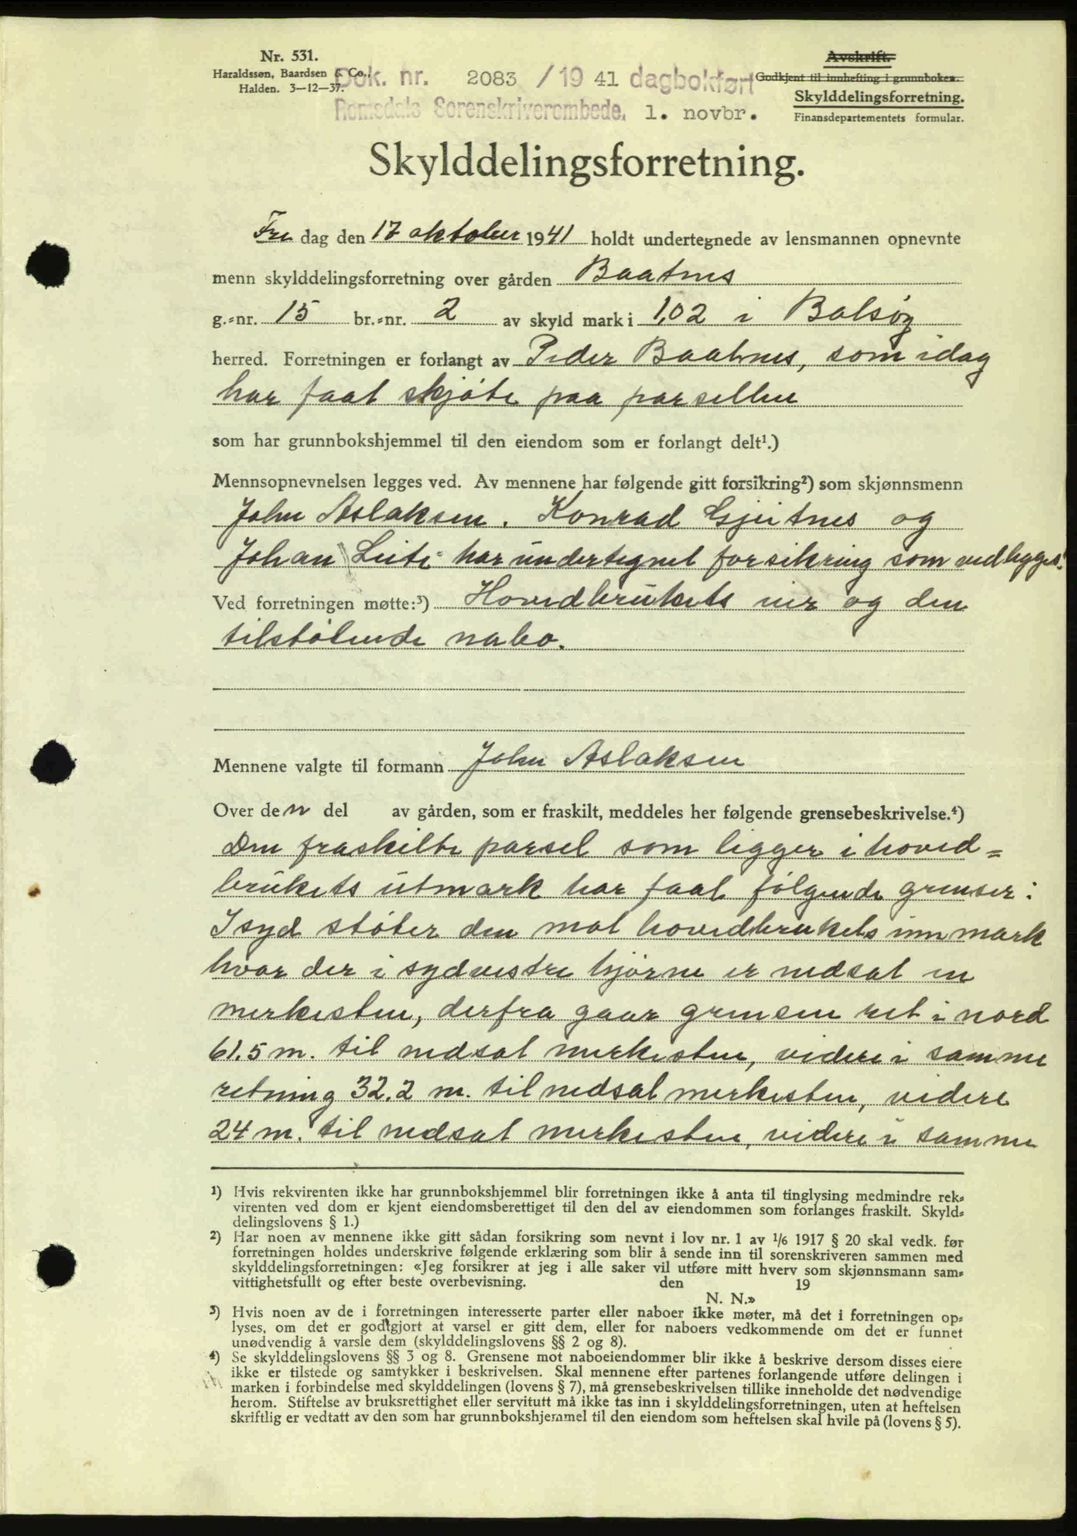 Nr. 531.
Haraldssøn, Baardsen & Co.,
Halden. 3—12—37.
Dok. nr. 2083 / 19 41 dagbokført
Romsdals Sorenskriverembede, 1. novbr.
Avskrift.
Godkjent til innhefting i grunnboken.
Skylddelingsforretning.
Finansdepartementets formular.
Skylddelingsforretning.
Fredag den 17 oktober 1941 holdt undertegnede av lensmannen opnevnte
menn skylddelingsforretning over gården Baatnes
g.=nr. 15 br.=nr. 2 av skyld mark i 1,02 i Bolsøy
herred. Forretningen er forlangt av Peder Baatnes, som idag
har faat skjøte paa parsellen
som har grunnbokshjemmel til den eiendom som er forlangt delt¹.)
Mennsopnevnelsen legges ved. Av mennene har følgende gitt forsikring²) som skjønnsmenn
John Aslaksen. Konrad Gjeitnes og
Johan Leite har undertegnet forsikring som vedlegges.
Ved forretningen møtte:³) Hovedbrukets eier og den
tilstøtende nabo.
Mennene valgte til formann John Aslaksen
Over den del av gården, som er fraskilt, meddeles her følgende grensebeskrivelse.⁴)
Den fraskilte parsel som ligger i hoved=
brukets utmark har faat følgende grenser:
I syd støter den mot hovedbrukets innmark
hvor der i sydvestre hjørne er nedsat en
merkesten, derfra gaar grensen ret i nord
61.5 m. til nedsat merkesten, videre i samme
retning 32.2 m. til nedsat merkesten, videre
24 m. til nedsat merkesten, videre i samme
¹) Hvis rekvirenten ikke har grunnbokshjemmel blir forretningen ikke å anta til tinglysing medmindre rek=
virenten ved dom er kjent eiendomsberettiget til den del av eiendommen som forlanges fraskilt. Skyld=
delingslovens § 1.)
²) Har noen av mennene ikke gitt sådan forsikring som nevnt i lov nr. 1 av ¹/₆ 1917 § 20 skal vedk. før
forretningen holdes underskrive følgende erklæring som blir å sende inn til sorenskriveren sammen med
skylddelingsforretningen: «Jeg forsikrer at jeg i alle saker vil utføre mitt hverv som skjønnsmann sam=
vittighetsfullt og efter beste overbevisning. den 19
N. N.»
³) Hvis noen av de i forretningen interesserte parter eller naboer ikke møter, må det i forretningen op=
lyses, om det er godtgjort at varsel er gitt dem, eller for naboers vedkommende om det er funnet
unødvendig å varsle dem (skylddelingslovens §§ 2 og 8).
⁴) Se skylddelingslovens §§ 3 og 8. Grensene mot naboeiendommer blir ikke å beskrive dersom disses eiere
ikke er tilstede og samtykker i beskrivelsen. Skal mennene efter partenes forlangende utføre delingen i
marken i forbindelse med skylddelingen (lovens § 7), må grensebeskrivelsen tillike inneholde det nødvendige
herom. Stiftelse av bruksrettighet eller servitutt må ikke tas inn i skylddelingsforretningen, uten at heftelsen
skriftlig er vedtatt av den som har grunnbokshjemmel til den eiendom som heftelsen skal hvile på (lovens § 5).